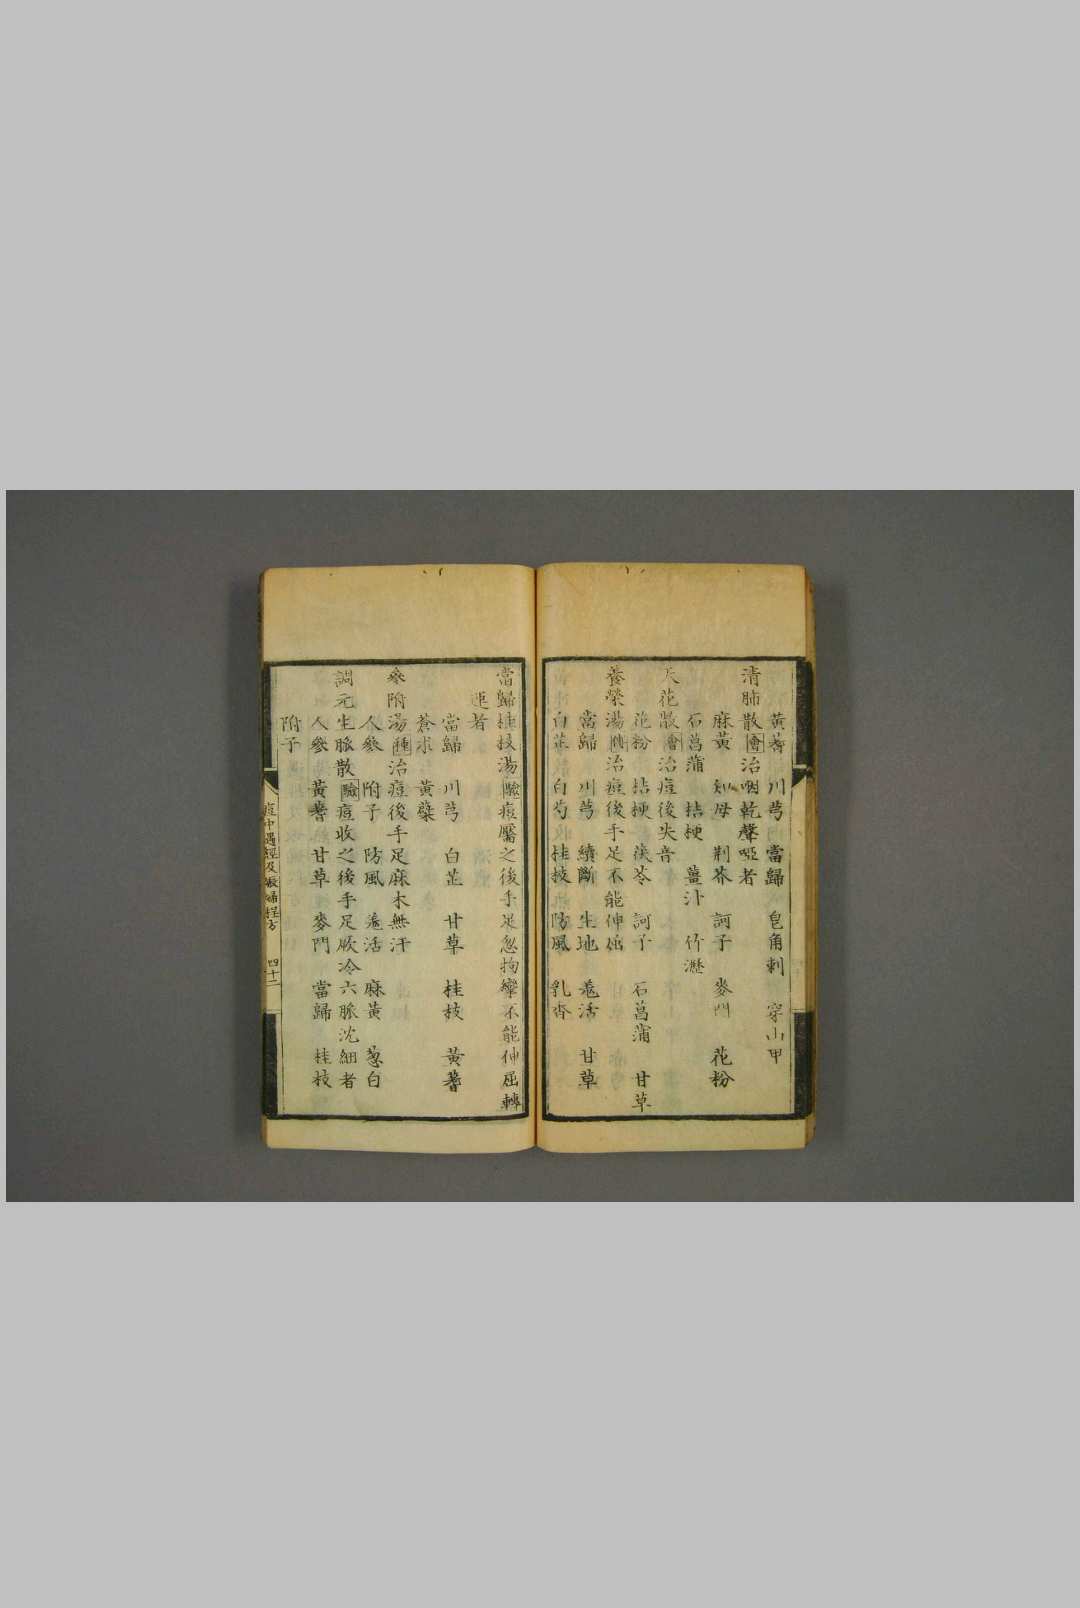 黃耆 川芎 當歸 皂角刺 穿山甲
清肺散會治咽乾聲啞者
麻黃 知母 荆芥 訶子 麥門 花粉
石菖蒲 桔梗 薑汁 竹瀝
天花散會治痘後失音
花粉 桔梗 茯苓 訶子 石菖蒲 甘草
養榮湯 治痘後手足不能伸屈
當歸 川芎 續斷 生地 羗活 甘草
白芷 白芍 桂枝 防風 乳香
當歸桂枝湯驗痘靨之後手足忽拘攣不能伸屈轉
運者
當歸 川芎 白芷 甘草 桂枝 黃耆
蒼朮 黃蘗
參附湯種治痘後手足麻木無汗
人參 附子 防風 羗活 麻黃 葱白
調元生脈散驗痘收之後手足厥冷六脈沈細者
人參 黃耆 甘草 麥門 當歸 桂枝
附子
痘中遇經及娠婦 方 四十二